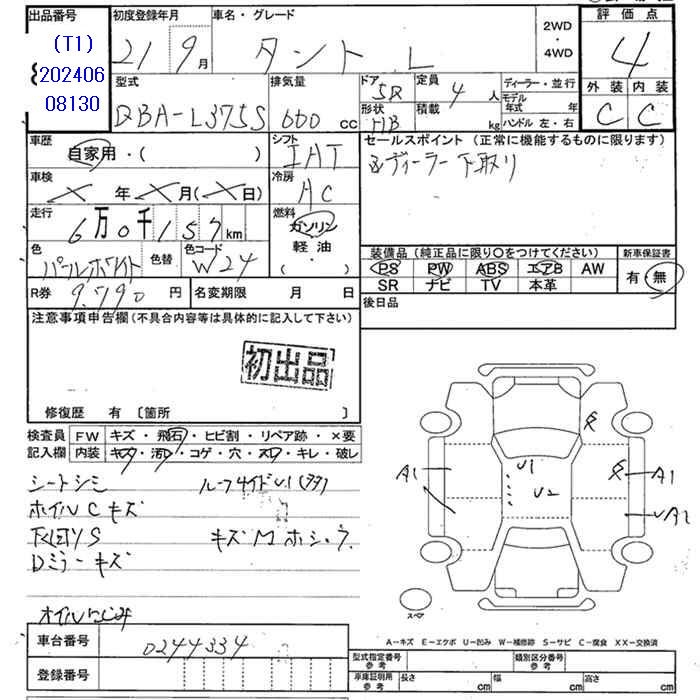 出品番号 初度登録年月 車名・グレード 2WD・4WD 評価点
(T1) 21 9月 タント L 4
202406
08130
型式 排気量 ドア 5R 定員 4人 ディーラー・並行 外装 内装
DBA-L375S 660 cc 形状 HB 積載 kg モデル年式 年 C C
ハンドル 左・右
車歴 シフト セールスポイント (正常に機能するものに限ります)
自家用・( ) IAT ディーラー下取り
車検 冷房
× 年 × 月 (× 日) AC
走行 燃料
6万0千157km ガソリン
軽油
( ・ )
色 色替 色コード 装備品 (純正品に限り○をつけてください) 新車保証書
パールホワイト W24 PS PW ABS エアB AW 有・無
SR ナビ TV 本革
R券 9,790円 名変期限 月 日 後日品
注意事項申告欄 (不具合内容等は具体的に記入して下さい)
初出品
修復歴 有 [箇所 ]
検査員 FW キズ・飛石・ヒビ割・リペア跡・×要
記入欄 内装 キズ・汚レ・コゲ・穴・スレ・キレ・破レ
シートシミ ルーフサイドU1
ホイルCキズ
下回りS キズM
Dミラーキズ
オイルにじみ
A1 U1 U2 A1
A2
スペア
A-キズ E-エクボ U-凹み W-補修跡 S-サビ C-腐食 XX-交換済
車台番号 0244334
登録番号
型式指定番号 参考 類別区分番号 参考
車庫証明用 参考 長さ cm 幅 cm 高さ cm